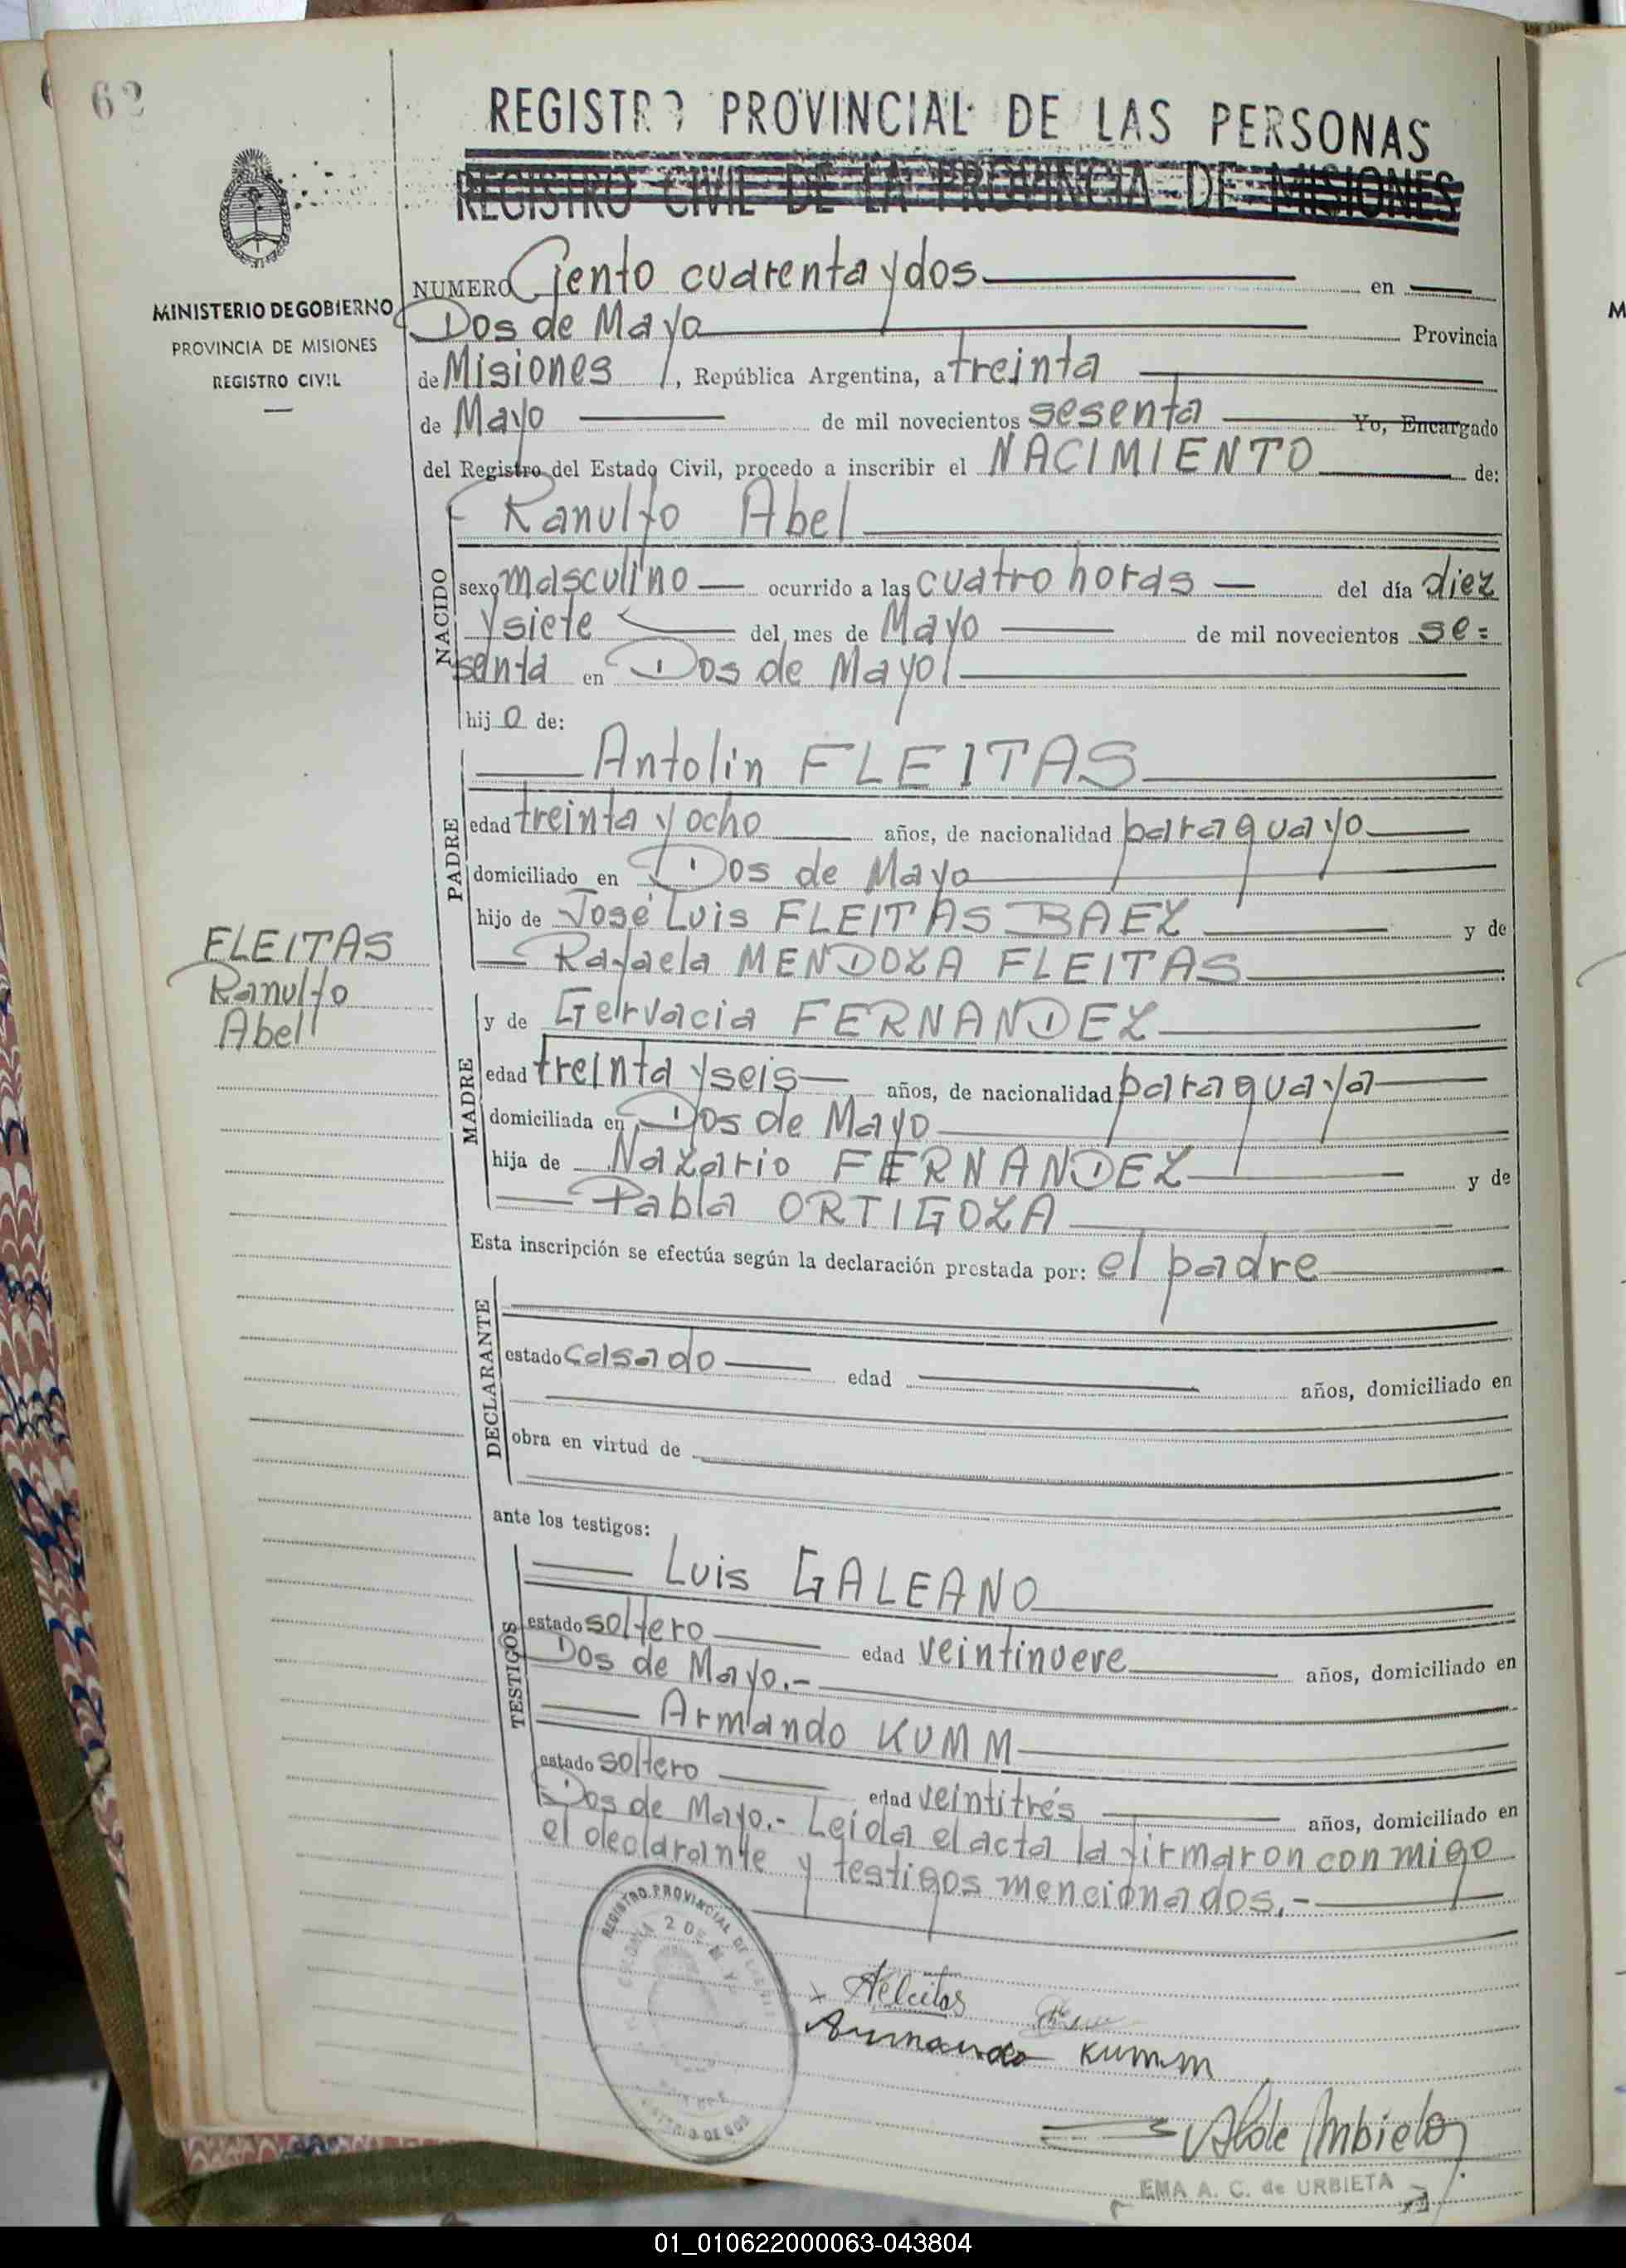 62
REGISTRO PROVINCIAL DE LAS PERSONAS
REGISTRO CIVIL DE LA PROVINCIA DE MISIONES
MINISTERIO DE GOBIERNO
PROVINCIA DE MISIONES
REGISTRO CIVIL
NUMERO Ciento cuarenta y dos en
Dos de Mayo Provincia
de Misiones, República Argentina, a treinta
de Mayo de mil novecientos sesenta Yo, Encargado
del Registro del Estado Civil, procedo a inscribir el NACIMIENTO de:
Ranulfo Abel
NACIDO
sexo masculino ocurrido a las cuatro horas del día diez
y siete del mes de Mayo de mil novecientos se=
senta en Dos de Mayo
hijo de:
Antolin FLEITAS
PADRE
edad treinta y ocho años, de nacionalidad paraguayo
domiciliado en Dos de Mayo
hijo de José Luis FLEITAS BAEZ y de
Rafaela MENDOZA FLEITAS
FLEITAS
Ranulfo
Abel
y de Gervacia FERNANDEZ
MADRE
edad treinta y seis años, de nacionalidad paraguaya
domiciliada en Dos de Mayo
hija de Nazario FERNANDEZ y de
Pabla ORTIGOZA
Esta inscripción se efectúa según la declaración prestada por: el padre
DECLARANTE
estado casado edad años, domiciliado en
obra en virtud de
ante los testigos:
Luis GALEANO
TESTIGOS
estado soltero edad veintinueve años, domiciliado en
Dos de Mayo.-
Armando KUMM
estado soltero edad veintitrés años, domiciliado en
Dos de Mayo.- Leída el acta la firmaron conmigo
el declarante y testigos mencionados.-
REGISTRO PROVINCIAL DE LAS
COLONIA 2 DE MAYO
Afleitas
Armando Kumm
EMA A. C. de URBIETA
01_010622000063-043804